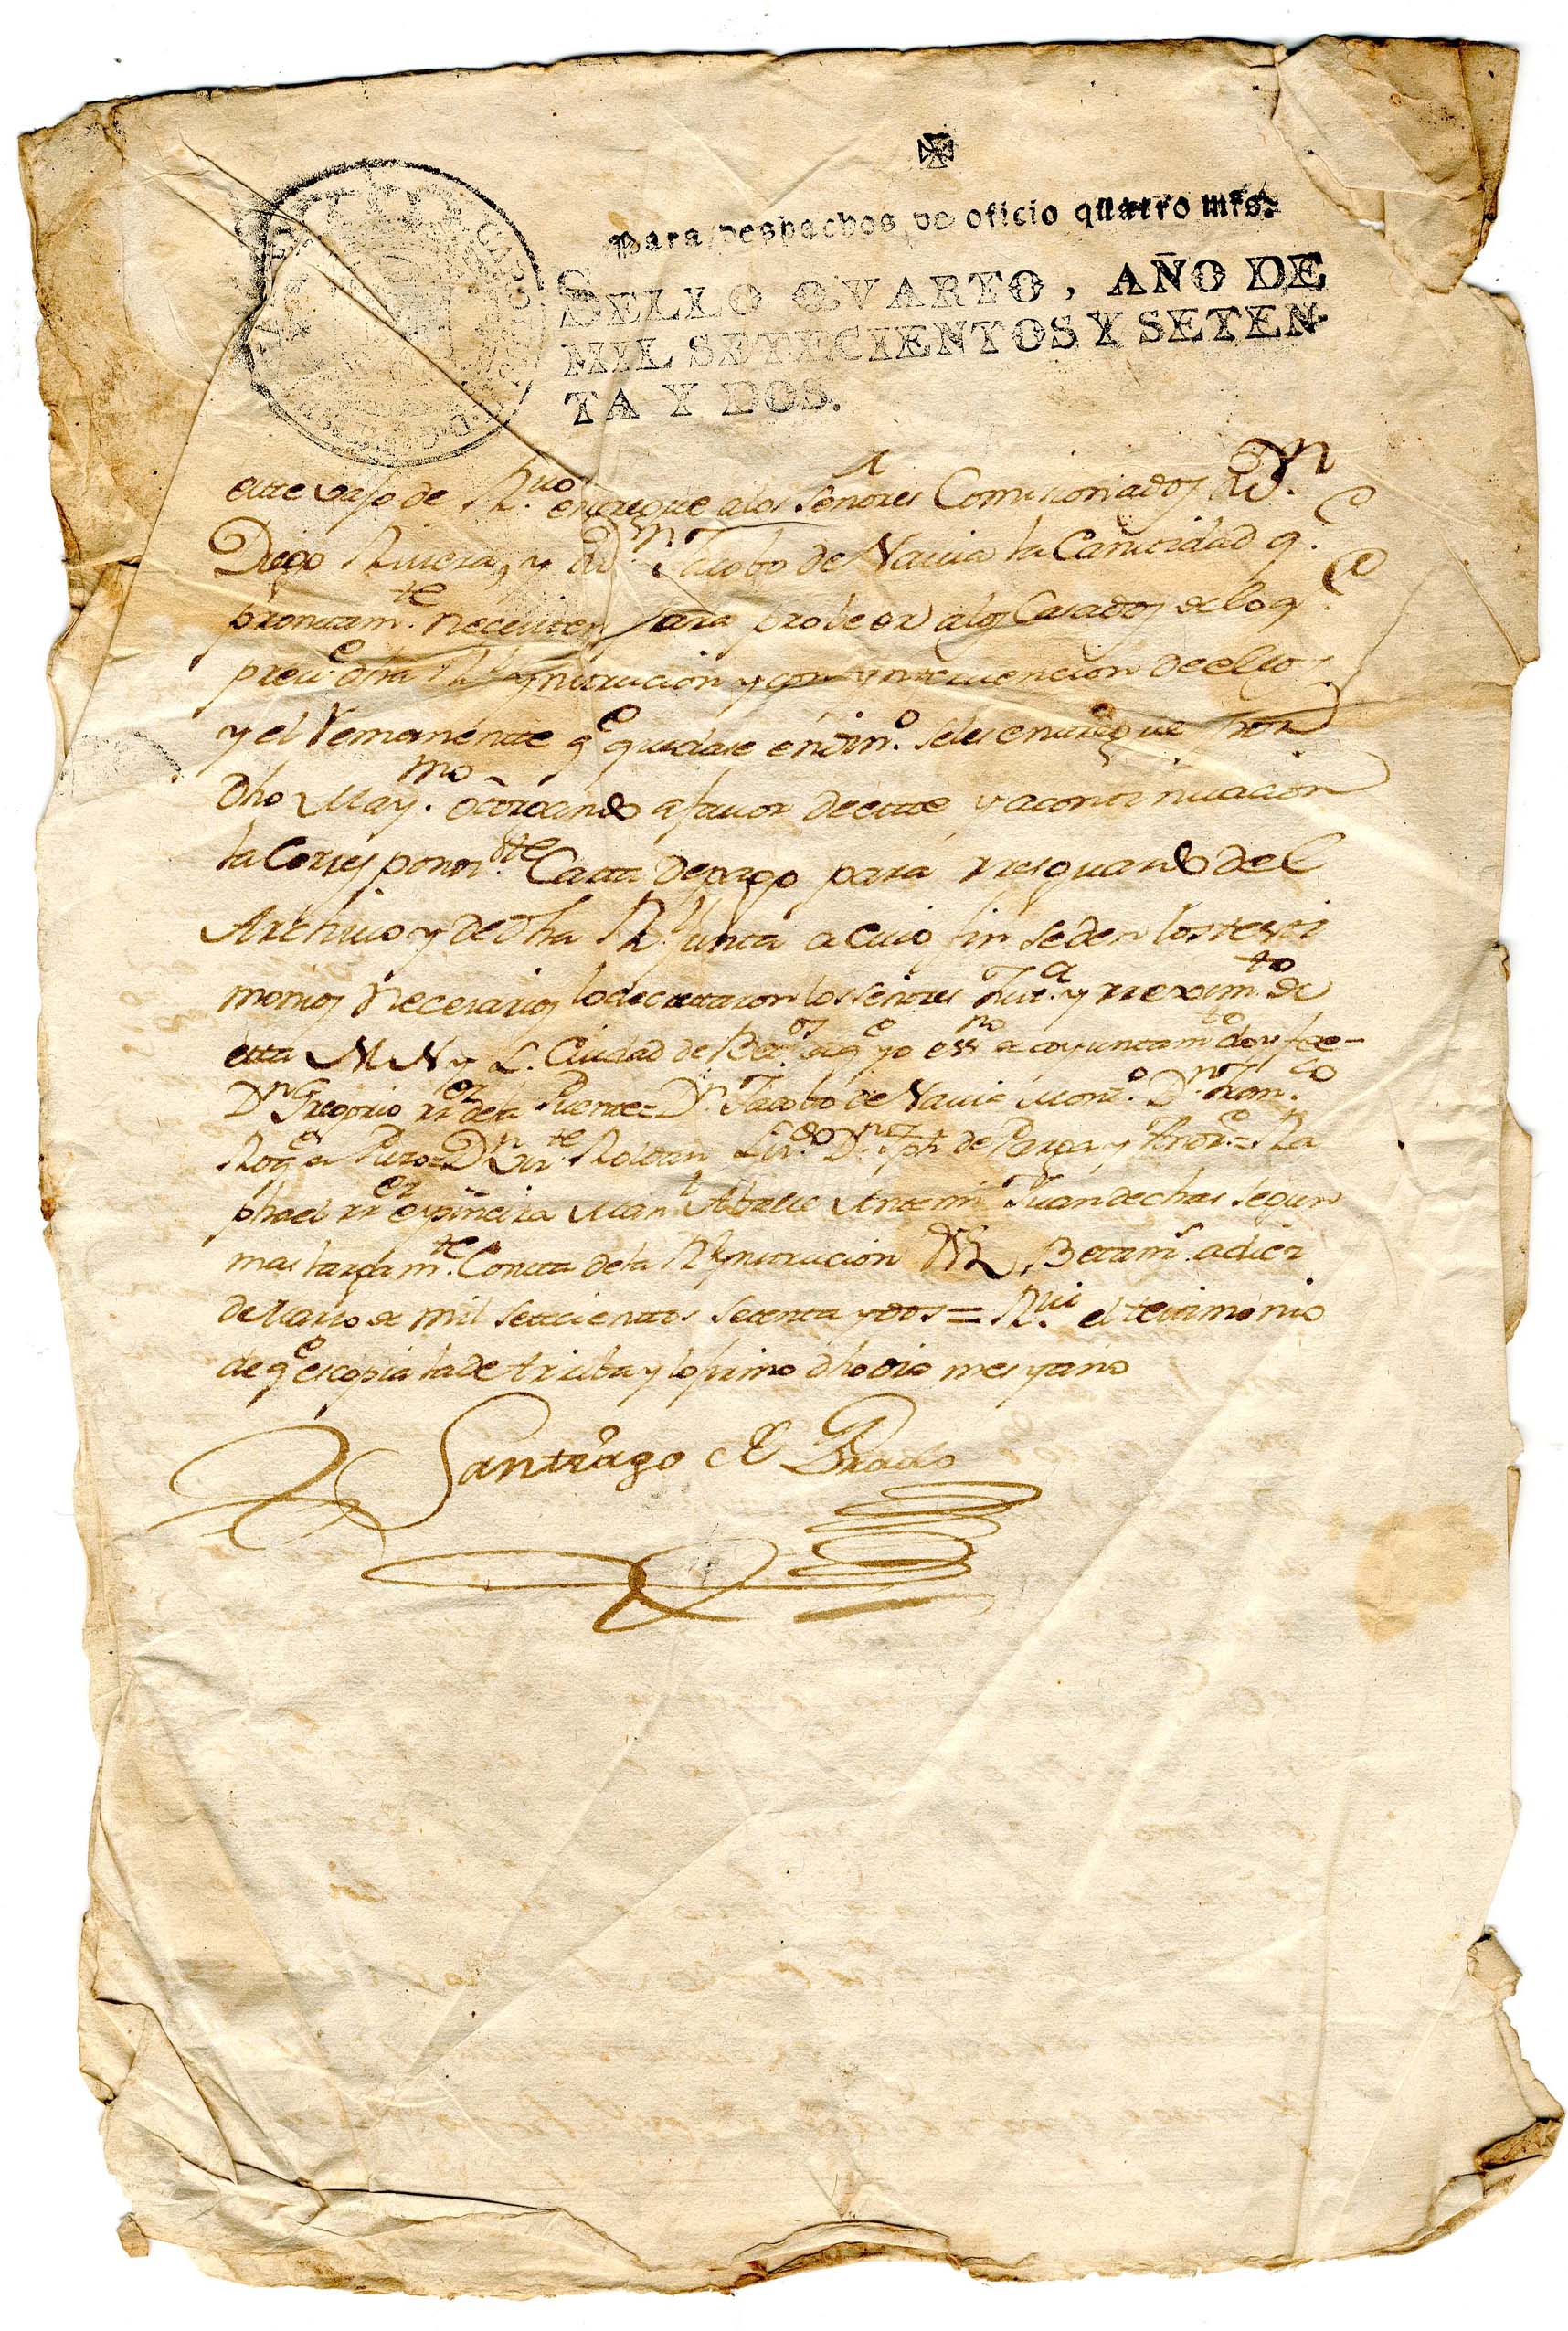 Para despachos de oficio quatro mrs.
SELLO QVARTO, AÑO DE
MIL SETECIENTOS Y SETEN-
TA Y DOS.
este vajo de Rvo. entregue alos Señores Comisionados Dn.
Diego Rivera, y Dn. Jacobo de Navia la Cantidad qe.
prontamte. necesiten para probeer alos Casados delo qe.
dha Rl. Ynstrucion y con yntervencion de ellos
y el Remanente qe quedase en din.o seles entregue por
dho Maymo. otorgando afavor deeste y acontinuacion
la Correspondte. Carta depago para rresguardo del
Archivo y de dha Rl. Junta acuio fin seden los testi
monios Necesarios lo decretaron los Señores Justa. y rreximto. de
esta M N y L. Ciudad de Betos. de qe yo essno de ayuntamto doy fee =
Dn Gregorio rrez dela Puente = Dn. Jacobo de Navia Monto. Dn. Franco.
Roqe Dn Vizte. Roldan Lizdo. Dn. Jph de Parga y = Ra
phael rrez espiñeira Manl Aballe Antemi Juan de chas segun
mas largamte. Consta dela Rl Ynstrucion Betams. adiez
de Marzo de mil setecientos setenta y dos = Rvi. el testimonio
de qe es copia la de Arriba y lo firmo dho dia mes y año
Santiago de Prado